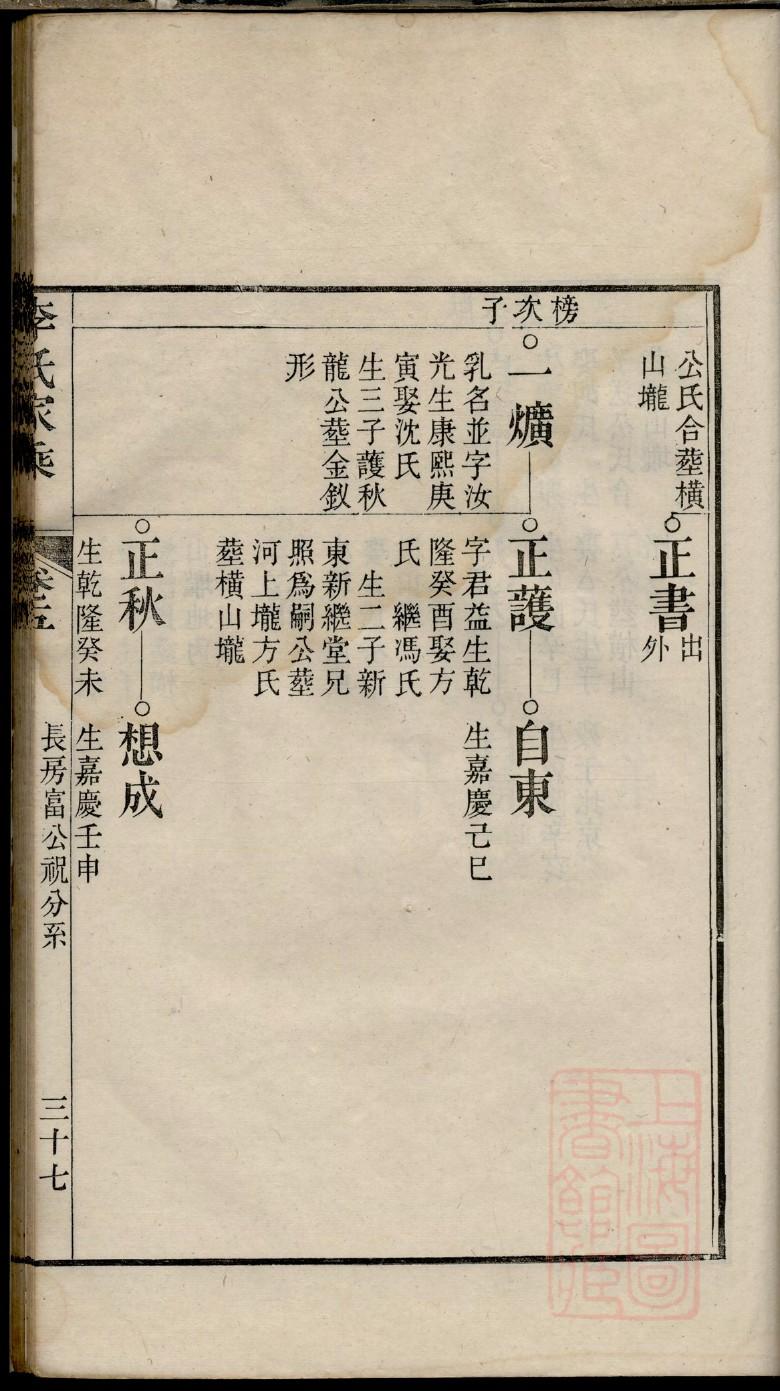 榜次子
公氏合塟橫
山壠
正書
出
外
一爌
乳名並字汝
光生康熙庚
寅娶沈氏
生三子護秋
龍公塟金釵
形
正護
字君益生乾
隆癸酉娶方
氏 繼馮氏
生二子新
東新繼堂兄
照爲嗣公塟
河上壠方氏
塟橫山壠
自東
生嘉慶己巳
正秋
生乾隆癸未
想成
生嘉慶壬申
李氏家乘
卷三
長房富公祝分系
三十七
上海圖
書館藏